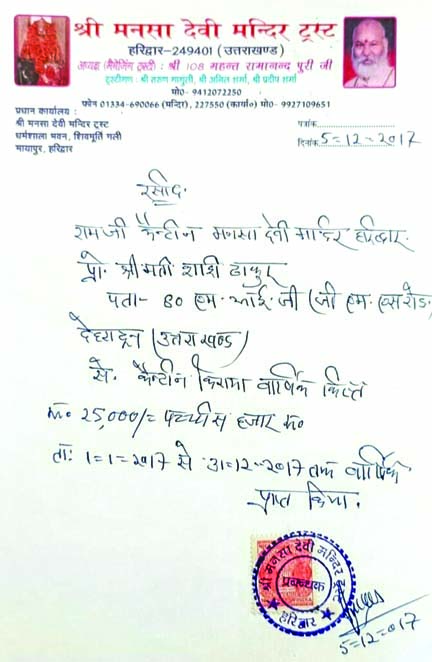 श्री मनसा देवी मन्दिर ट्रस्ट
हरिद्वार-249401 (उत्तराखण्ड)
अध्यक्ष (मैनेजिंग ट्रस्टी) : श्री 108 महन्त रामानन्द पुरी जी
ट्रस्टीगण : श्री अनिल शर्मा, श्री प्रदीप शर्मा
मो०- 9412072250
फोन 01334-690066 (मन्दिर), 227550 (कार्या०) मो०- 9927109651
प्रधान कार्यालय :
श्री मनसा देवी मन्दिर ट्रस्ट
धर्मशाला भवन, शिवमूर्ति गली
मायापुर, हरिद्वार
पत्रांक
दिनांक 5=12=2017
रसीद.
रामजी कैन्टीन मनसा देवी मन्दिर हरिद्वार.
प्रो. श्रीमती शशि ठाकुर
पता- 80 एम. आई. जी (जी एम. एस रोड.
देहरादून (उत्तराखण्ड)
से. कैन्टीन किराया वार्षिक किस्त
रू० 25,000/= पच्चीस हजार रू०
ता: 1=1=2017 से 31=12=2017 तक वार्षिक
प्राप्त किया.
श्री मनसा देवी मन्दिर ट्रस्ट
प्रबन्धक
हरिद्वार
5=12=017